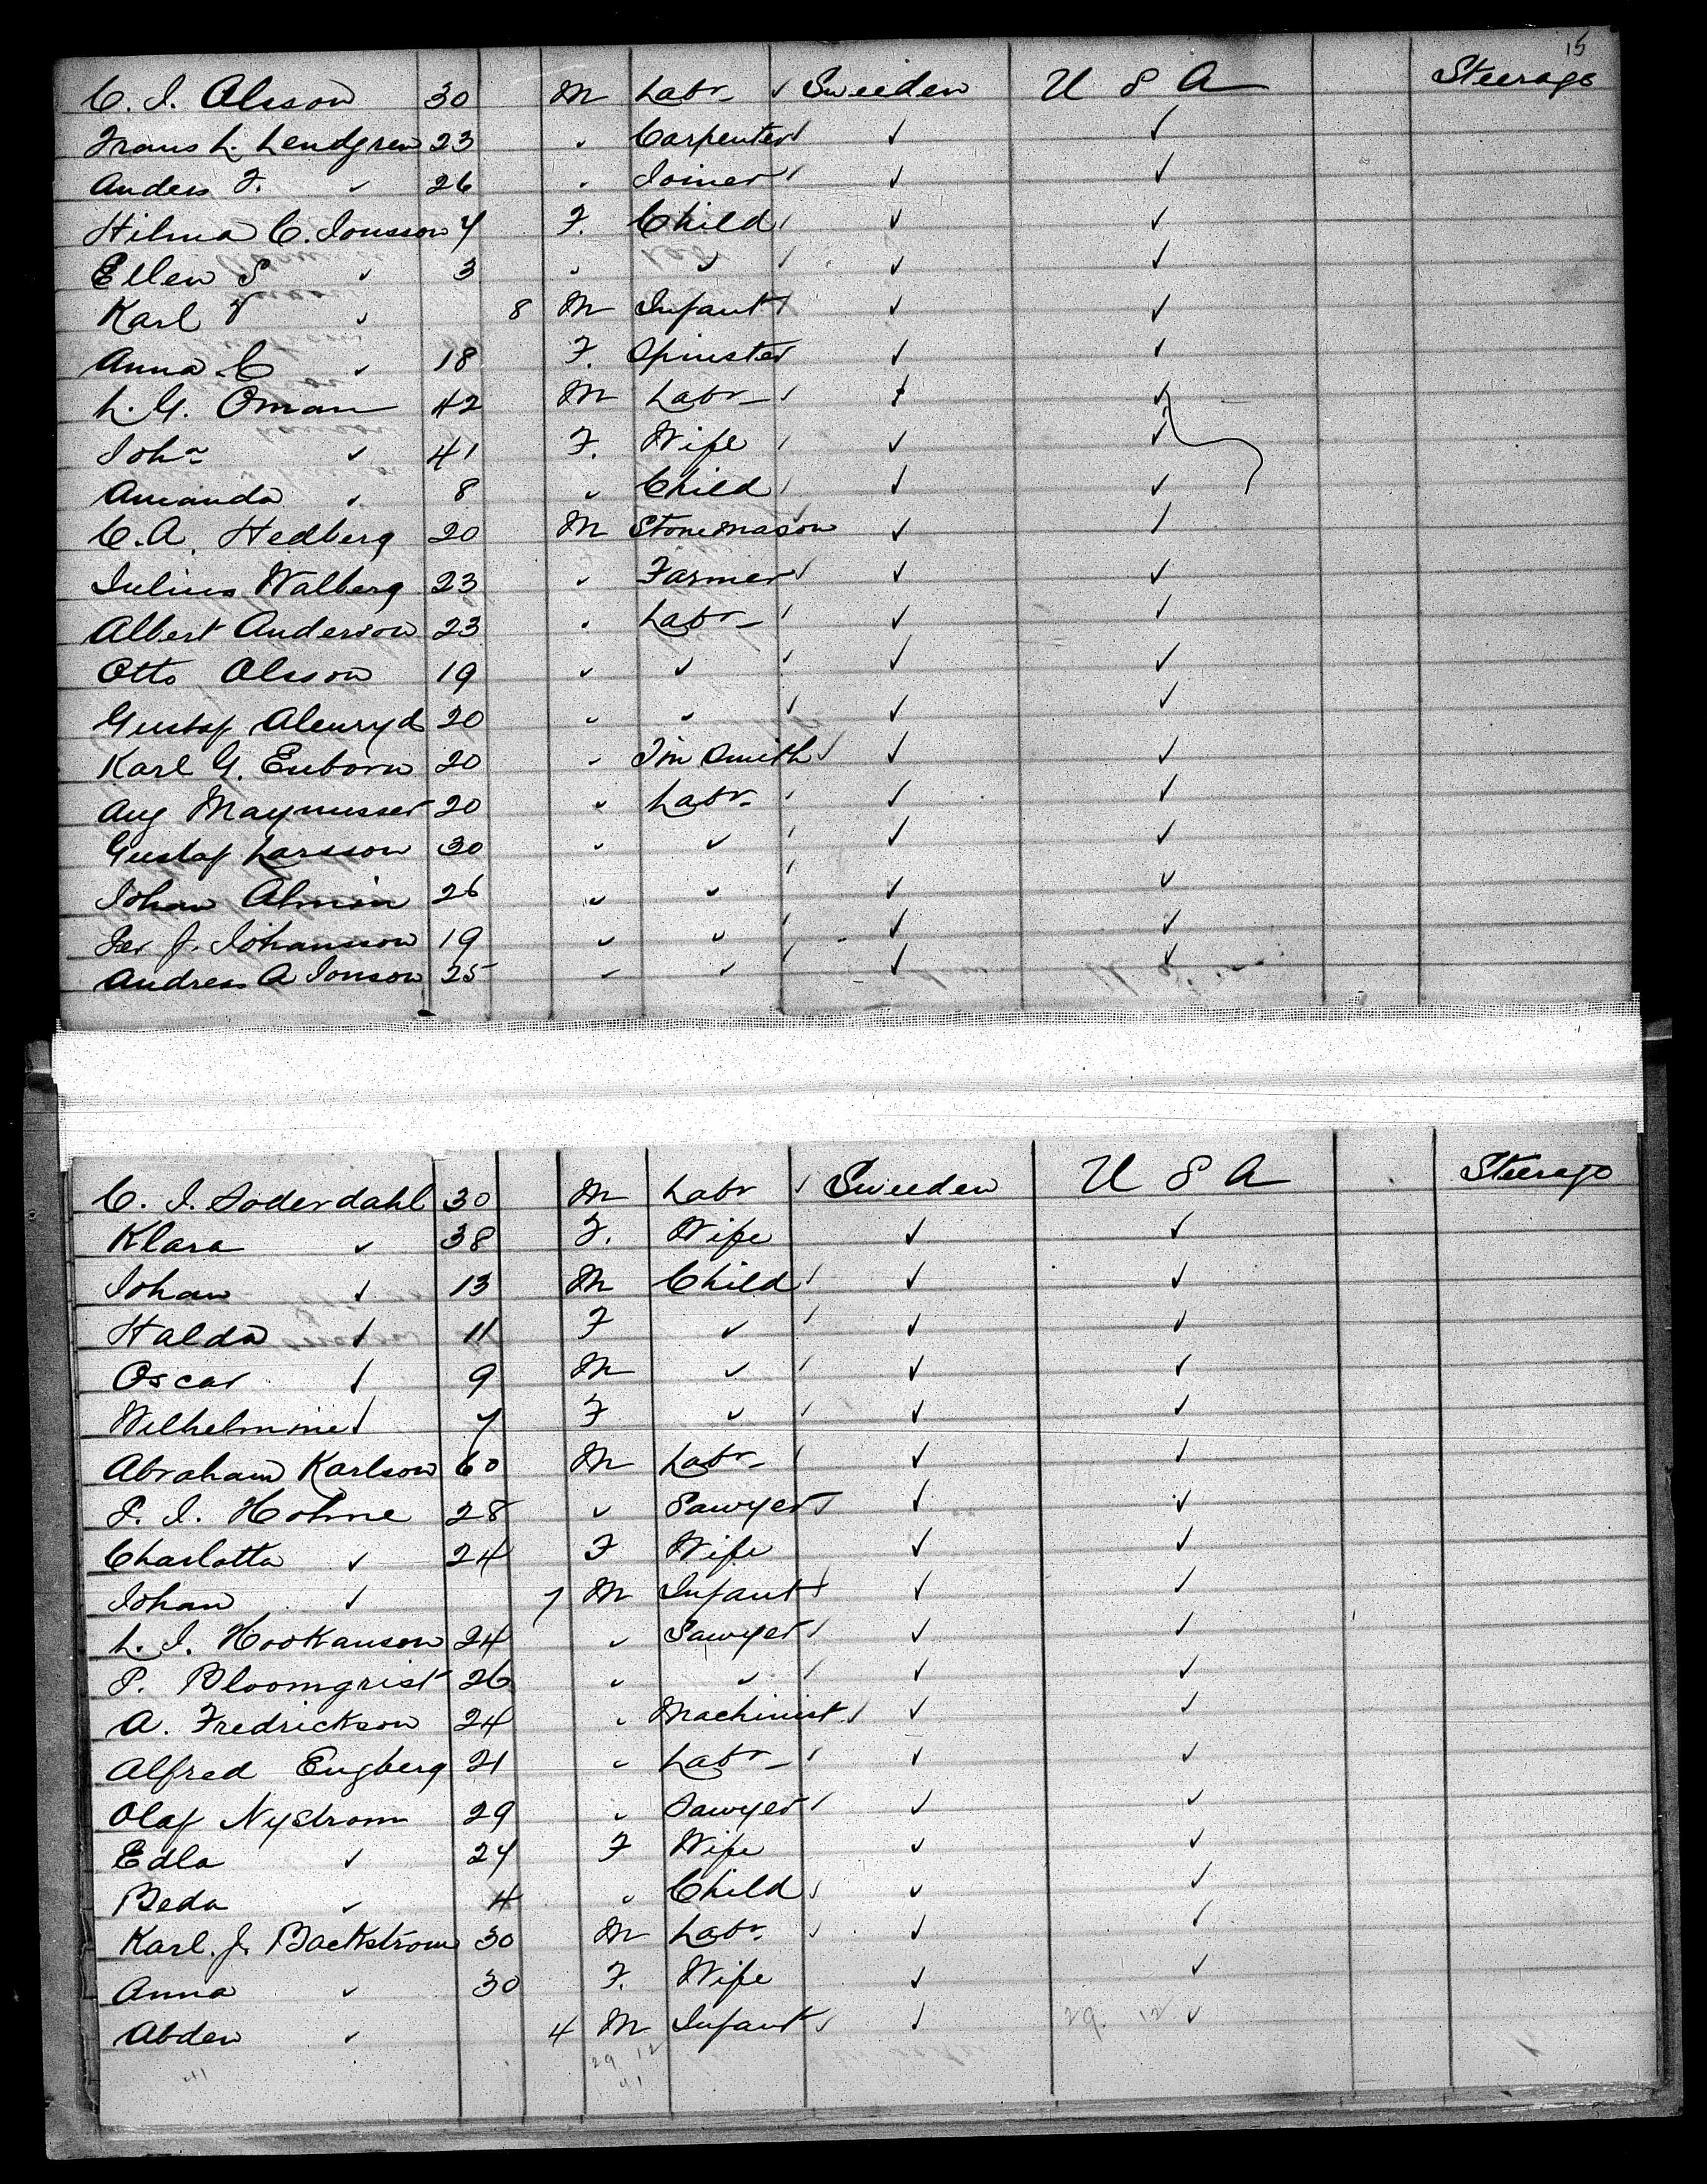 15
C. J. Olsson 30 M Labr ✓ Sweeden U S A Steerage
Frans L. Lendgren 23 " Carpenter ✓ ✓
Anders F. " 26 " Joiner ✓ ✓
Hilma C. Jonsson 7 F. Child ✓ ✓
Ellen S " 3 " " ✓ ✓
Karl V " 8 M Infant ✓ ✓
Anna C " 18 F. Spinster ✓ ✓
L. G. Oman 42 M Labr ✓ ✓
Joha " 41 F. Wife ✓ ✓
Amanda " 8 " Child ✓ ✓
C. A. Hedberg 20 M Stonemason ✓ ✓
Julius Walberg 23 " Farmer ✓ ✓
Albert Anderson 23 " Labr ✓ ✓
Otto Olsson 19 " " ✓ ✓
Gustaf Alenryd 20 " " ✓ ✓
Karl G. Enborn 20 " Tin Smith ✓ ✓
Aug Maynusser 20 " Labr ✓ ✓
Gustaf Larsson 30 " " ✓ ✓
Johan Almin 26 " " ✓ ✓
Per J. Johansson 19 " " ✓ ✓
Andreas A Jonson 25 " " ✓ ✓
C. J. Soderdahl 30 M Labr ✓ Sweeden U S A Steerage
Klara " 38 F. Wife ✓ ✓
Johan " 13 M Child ✓ ✓
Halda " 11 F " ✓ ✓
Oscar " 9 M " ✓ ✓
Wilhelmine " 7 F " ✓ ✓
Abraham Karlson 60 M Labr ✓ ✓
P. J. Holme 28 " Sawyer ✓ ✓
Charlotta " 24 F Wife ✓ ✓
Johan " 7 M Infant ✓ ✓
L. J. Hookanson 24 " Sawyer ✓ ✓
P. Bloomqrist 26 " " ✓ ✓
A. Fredrickson 24 " Machinist ✓ ✓
Alfred Engberg 21 " Labr ✓ ✓
Olaf Nystrom 29 " Sawyer ✓ ✓
Edla " 24 F Wife ✓ ✓
Beda " 4 " Child ✓ ✓
Karl. J. Backstrom 30 M Labr ✓ ✓
Anna " 30 F. Wife ✓ ✓
Abden " 4 M Infant ✓ 29. 12 ✓
41 29 12
41